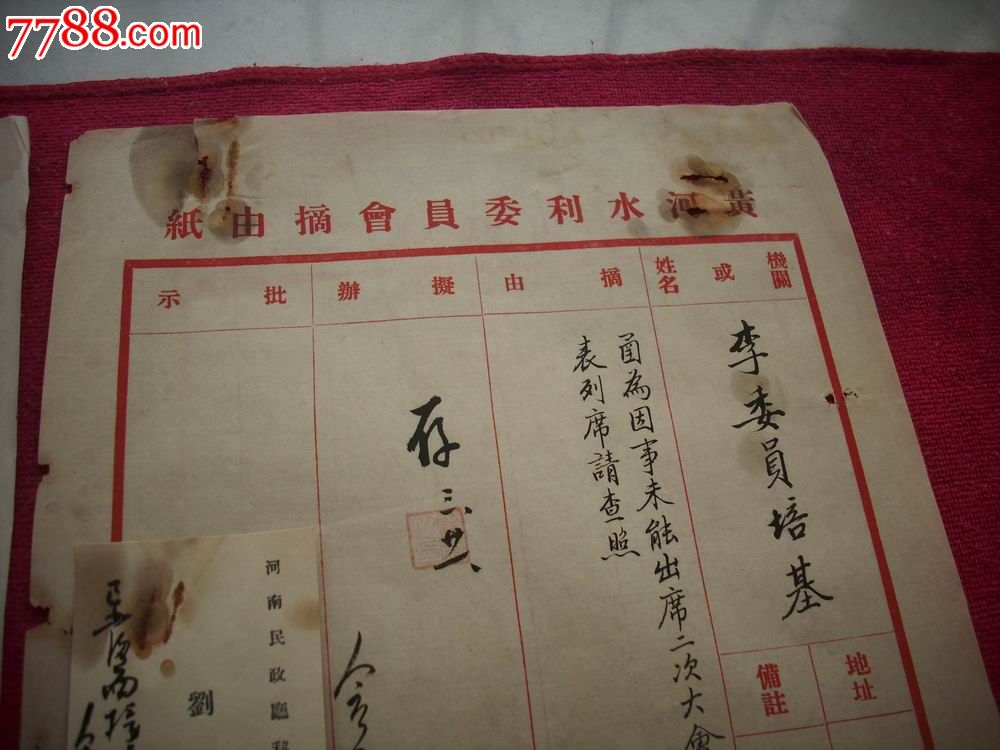 7788.com
黃河水利委員會摘由紙
機關
或
姓名
摘由
擬辦
批示
李委員培基
函為因事未能出席二次大會
表列席請查照
存 三
地址
備註
河南民政廳
劉